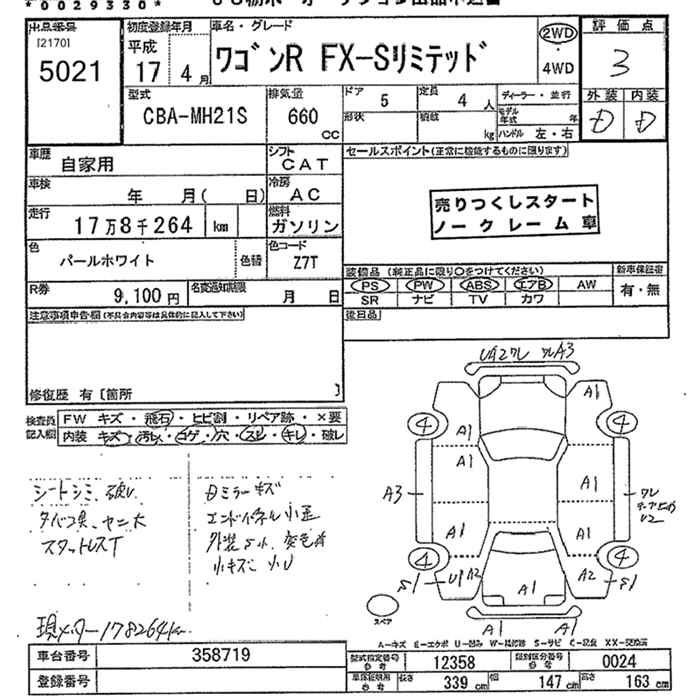 *0029330*
出品番号 初度登録年月 車名・グレード 評価点
[2170] 平成 ワゴンR FX-Sリミテッド 2WD 3
5021 17年 4月 4WD
型式 排気量 ドア 定員 ディーラー・並行 外装 内装
CBA-MH21S 660 CC 5 4人 モデル年式 年 D D
形状 積載 kg ハンドル 左・右
車歴 自家用 シフト CAT セールスポイント(正常に機能するものに限ります)
車検 年 月( 日) 冷房 AC
走行 17万8千264 km 燃料 ガソリン
売りつくしスタート
ノークレーム車
色 パールホワイト 色替 色コード Z7T
装備品(純正品に限り○をつけてください) 新車保証書
PS PW ABS エアB AW 有・無
SR ナビ TV カワ
R券 9,100円 名変通知期限 月 日 後日品
注意事項申告欄(不具合内容等は具体的に記入して下さい)
修復歴 有 [箇所 ]
検査員記入欄 FW キズ・飛石・ヒビ割・リペア跡・×要
内装 キズ・汚レ・コゲ・穴・スレ・キレ・破レ
シートシミ、破レ
タバコ臭、ヤニ大
スタットレスT
Dミラーキズ
エンドパネル小歪
小キズ 小U
現メーター178264km
ワレA3
A1 A1 A1 A1 A1 A1
4 4 4 4
A3 ワレ U2
S1 U1 A2 A1 A2 S1
A1 A1
スペア
A-キズ E-エクボ U-凹み W-補修跡 S-サビ C-腐食 XX-交換済
車台番号 358719
登録番号
型式指定番号 参考 12358 類別区分番号 参考 0024
車検証明用 参考 長さ 339 cm 幅 147 cm 高さ 163 cm